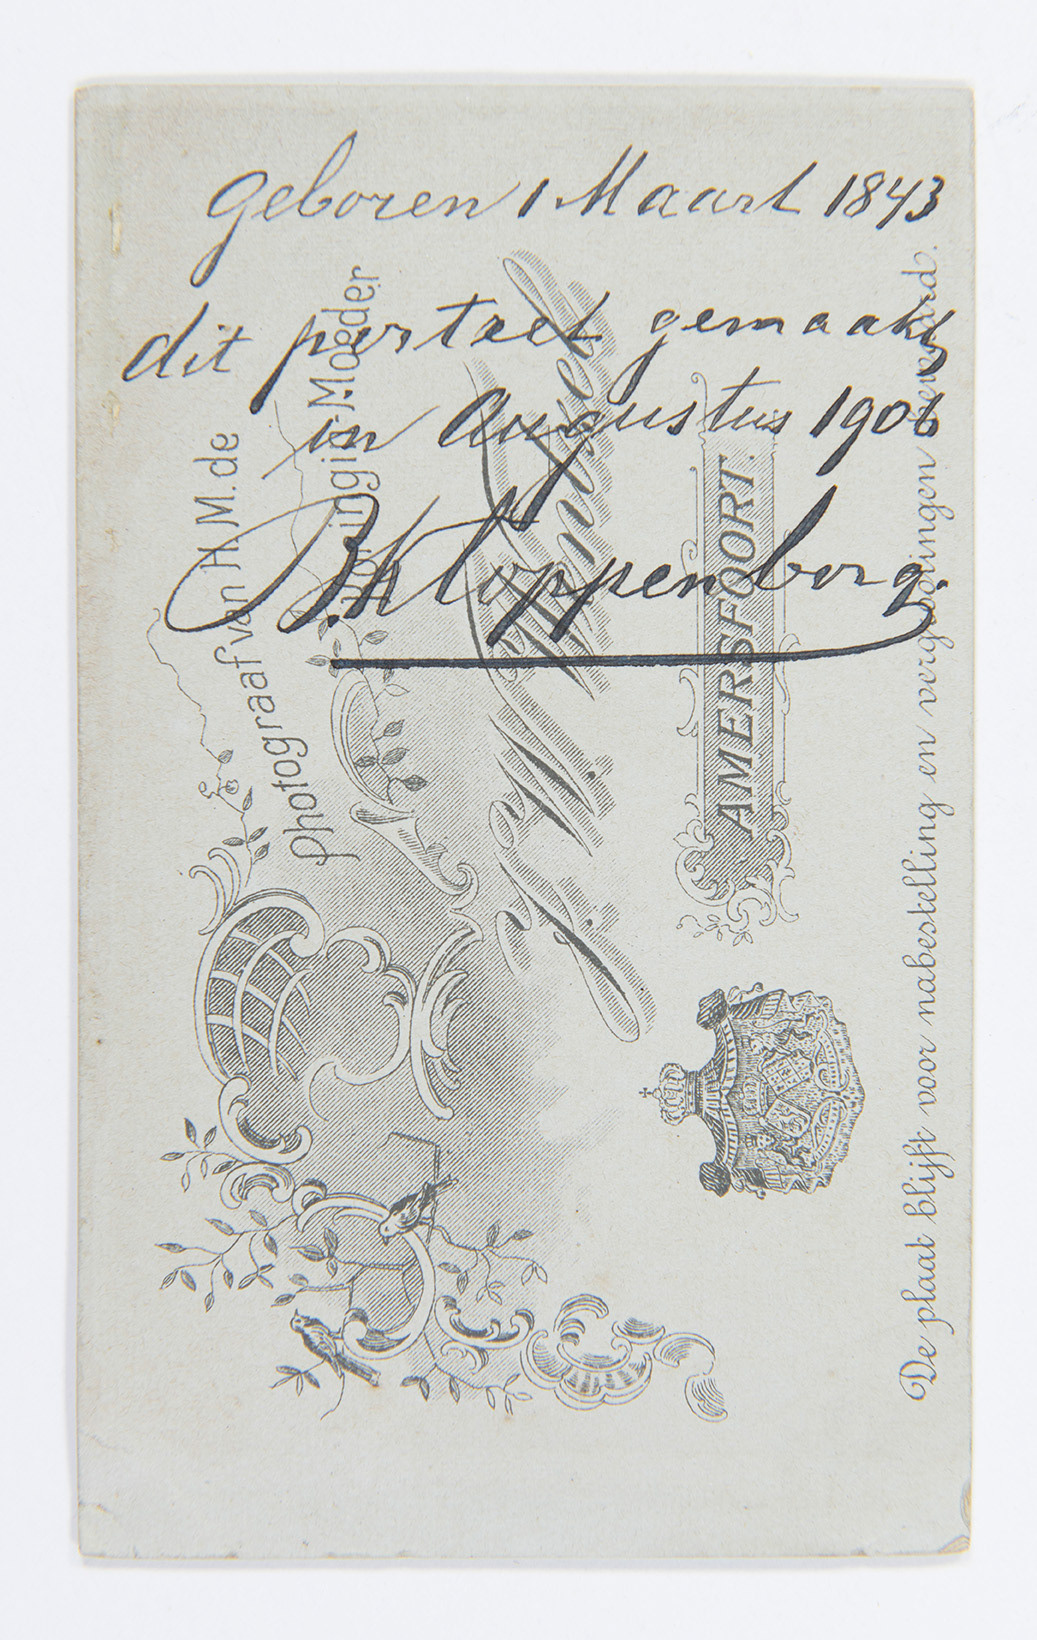 geboren 1 Maart 1843
dit portret gemaakt
in Augustus 1906
B. Kloppenborg.
Photograaf van H.M. de
Koningin-Moeder
AMERSFOORT.
De plaat blijft voor nabestelling en vergrootingen bewaard.